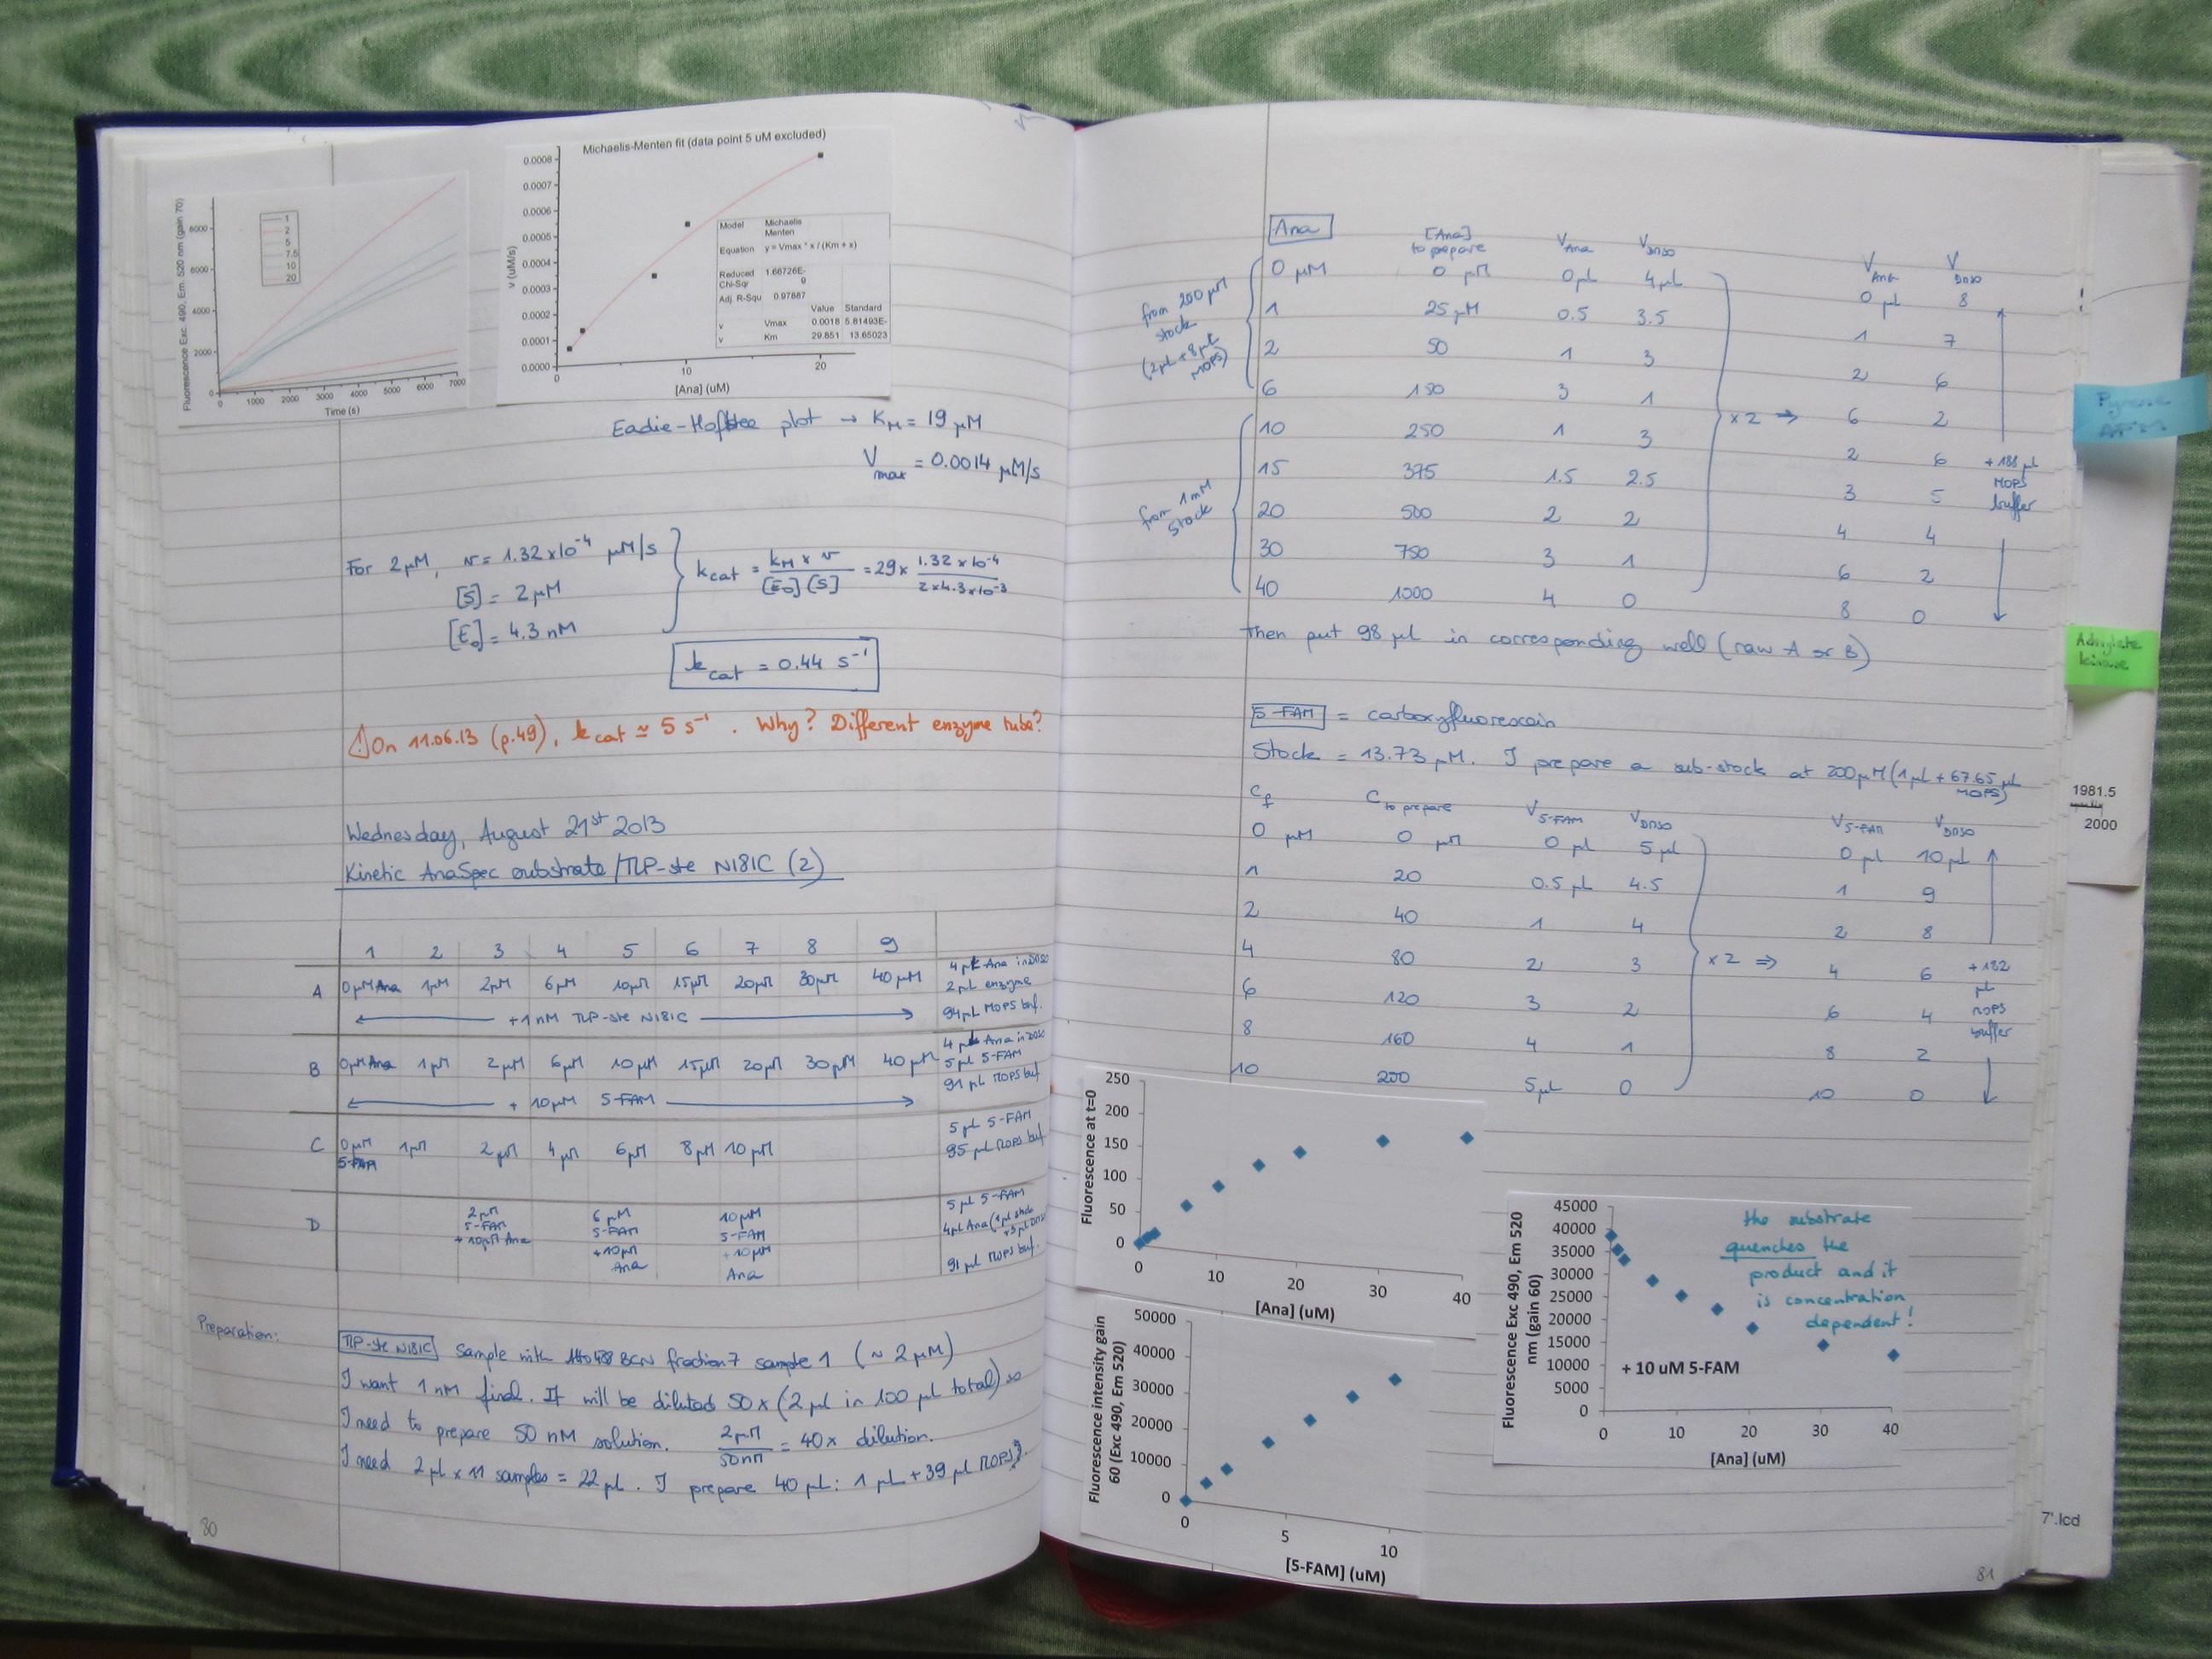 Fluorescence Exc. 490, Em. 520 nm (gain 70)
8000
6000
4000
2000
0
1
2
5
7.5
10
20
0 1000 2000 3000 4000 5000 6000 7000
Time (s)
Michaelis-Menten fit (data point 5 uM excluded)
v (uM/s)
0.0008
0.0007
0.0006
0.0005
0.0004
0.0003
0.0002
0.0001
0.0000
0 10 20
[Ana] (uM)
Model Michaelis Menten
Equation y = Vmax * x / (Km + x)
Reduced Chi-Sqr 1.66726E-9
Adj. R-Squ 0.97887
Value Standard
v Vmax 0.0018 5.81493E-
v Km 29.851 13.65023
Eadie-Hofstee plot → KM = 19 µM
Vmax = 0.0014 µM/s
For 2µM, v = 1.32 x10-4 µM/s
[S] = 2µM
[E0] = 4.3 nM
kcat = kM x v / [E0][S] = 29 x 1.32 x 10-4 / 2 x 4.3 x 10-3
kcat = 0.44 s-1
⚠ On 11.06.13 (p.49), kcat ≃ 5 s-1. Why? Different enzyme tube?
Wednesday, August 21st 2013
Kinetic AnaSpec substrate/TLP-ste N181C (2)
1 2 3 4 5 6 7 8 9
A 0µM Ana 1µM 2µM 6µM 10µM 15µM 20µM 30µM 40µM
+1 nM TLP-ste N181C
4µL Ana in DMSO
2µL enzyme
94µL MOPS buf.
B 0µM Ana 1µM 2µM 6µM 10µM 15µM 20µM 30µM 40µM
+ 10µM 5-FAM
4µL Ana in DMSO
5µL 5-FAM
91µL MOPS buf
C 0µM 5-FAM 1µM 2µM 4µM 6µM 8µM 10µM
5µL 5-FAM
95µL MOPS buf.
D 2µM 5-FAM +10µM Ana 6µM 5-FAM +10µM Ana 10µM 5-FAM +10µM Ana
5µL 5-FAM
4µL Ana (1µL stock +3µL DMSO
91µL MOPS buf.
Preparation:
TLP-ste N181C sample with Atto488 BCN fraction 7 sample 1 (~ 2µM)
I want 1 nM final. It will be diluted 50x (2µL in 100µL total) so
I need to prepare 50 nM solution. 2µM / 50nM = 40x dilution.
I need 2µL x 11 samples = 22µL. I prepare 40µL: 1µL + 39µL MOPS.
80
Ana [Ana] to prepare VAna VDMSO VAna VDMSO
from 200µM stock (2µL + 8µL MOPS)
0 µM 0 µM 0µL 4µL 0µL 8
1 25µM 0.5 3.5 1 7
2 50 1 3 2 6
6 150 3 1 6 2
from 1mM stock
10 250 1 3 2 6
15 375 1.5 2.5 3 5
20 500 2 2 4 4
30 750 3 1 6 2
40 1000 4 0 8 0
x2 ⇒
+188µL MOPS buffer
then put 98µL in corresponding well (raw A or B)
5-FAM = carboxyfluorescein
Stock = 13.73µM. I prepare a sub-stock at 200µM (1µL + 67.65µL MOPS)
Cf C to prepare V5-FAM VDMSO V5-FAM VDMSO
0 µM 0 µM 0µL 5µL 0µL 10µL
1 20 0.5µL 4.5 1 9
2 40 1 4 2 8
4 80 2 3 4 6
6 120 3 2 6 4
8 160 4 1 8 2
10 200 5µL 0 10 0
x2 ⇒
+182 µL MOPS buffer
Fluorescence at t=0
250
200
150
100
50
0
0 10 20 30 40
[Ana] (uM)
Fluorescence intensity gain 60 (Exc 490, Em 520)
50000
40000
30000
20000
10000
0
0 5 10
[5-FAM] (uM)
Fluorescence Exc 490, Em 520 nm (gain 60)
45000
40000
35000
30000
25000
20000
15000
10000
5000
0
0 10 20 30 40
[Ana] (uM)
+ 10 uM 5-FAM
the substrate
quenches the
product and it
is concentration
dependent!
81
Pyrene
Adenylate
kinase
1981.5
2000
7'.lcd